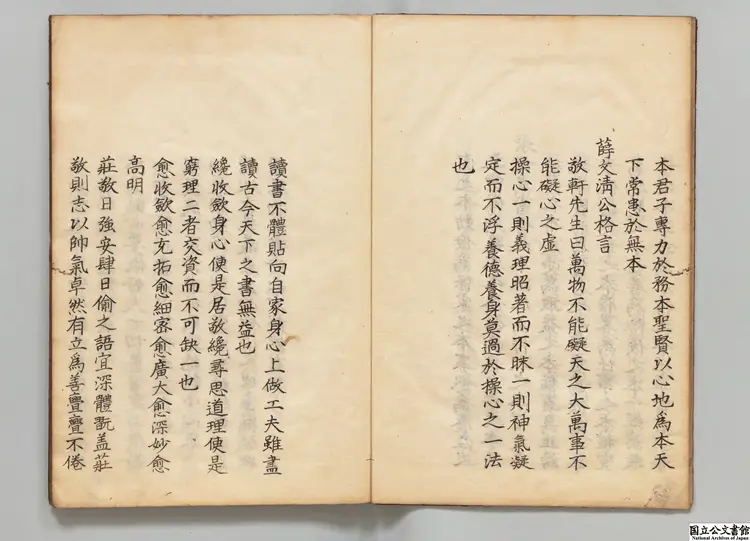 本君子專力於務本聖賢以心地為本天
下常患於無本
薛文清公格言
敬軒先生曰萬物不能礙天之大萬事不
能礙心之虛
操心一則義理昭著而不昧一則神氣凝
定而不浮養德養身莫過於操心之一法
也
讀書不體貼向自家身心上做工夫雖盡
讀古今天下之書無益也
纔收斂身心便是居敬纔尋思道理便是
窮理二者交資而不可缺一也
愈收斂愈充拓愈細密愈廣大愈深妙愈
高明
莊敬日強安肆日偷之語宜深體翫盖莊
敬則志以帥氣卓然有立為善亹亹不倦
国立公文書館
National Archives of Japan